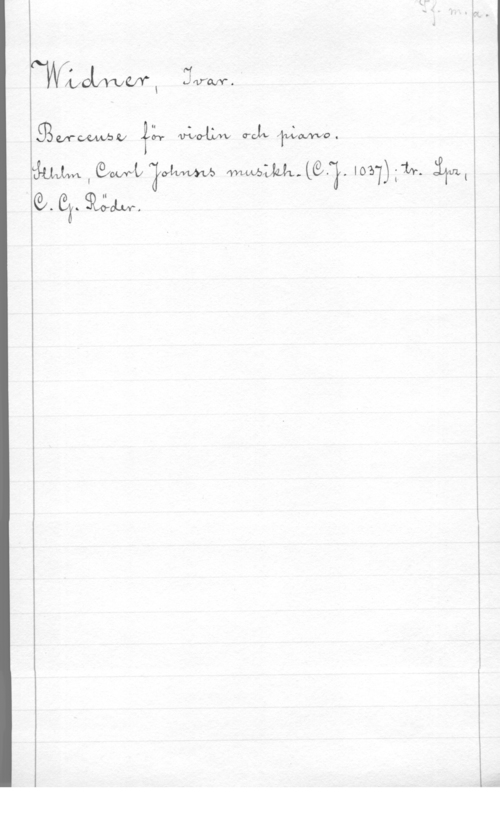 Sf. m. a.
Widner, Ivar.
Berceuse för violin och piano.
Sthlm, Carl Johnns musikh. (C.J. 1037); tr. Lpz,
C. G. Röder.